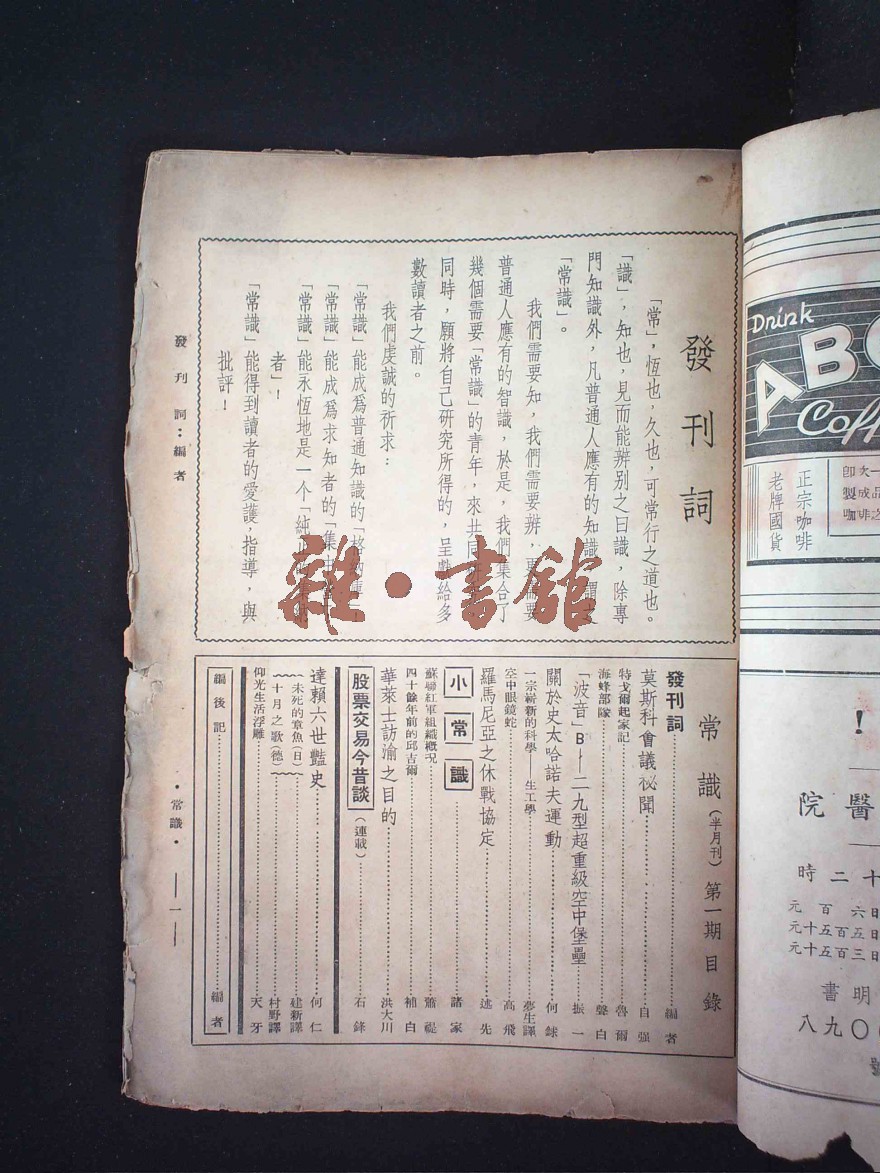 發刊詞
「常」，恆也，久也，可常行之道也。
「識」，知也，見而能辨别之曰識，除專
門知識外，凡普通人應有的知識
「常識」。
我們需要知，我們需要辨，需要
普通人應有的智識，於是，我們集合了
幾個需要「常識」的青年，來共同
同時，願將自己研究所得的，呈獻給多
數讀者之前。
我們虔誠的祈求：
「常識」能成爲普通知識的「格
「常識」能成爲求知者的「集
「常識」能永恆地是一个「純
者」！
「常識」能得到讀者的愛護，指導，與
批評！
常識（半月刊）第一期目錄
發刊詞 編者
莫斯科會議祕聞 自强
特戈爾起家記 魯爾
海蜂部隊 聲白
「波音」B—二九型超重級空中堡壘 振一
關於史太哈諾夫運動 何銶
一宗嶄新的科學——生工學 夢生譯
空中眼鏡蛇 高飛
羅馬尼亞之休戰協定 述先
小常識 諸家
蘇聯紅軍組織概况 蕭禔
四十餘年前的邱吉爾 補白
華萊士訪渝之目的 洪大川
股票交易今昔談（連載） 石鋒
達賴六世豔史 何仁
未死的章魚（日） 建新譯
十月之歌（德） 村野譯
仰光生活浮雕 天牙
編後記 編者
發刊詞：編者
・常識・ —一—
Drink
ABC
Coff
正宗咖啡
老牌國貨
！
醫院
十二時
六百元
五百五十元
三百五十元
明書
〇九八
雜·書館